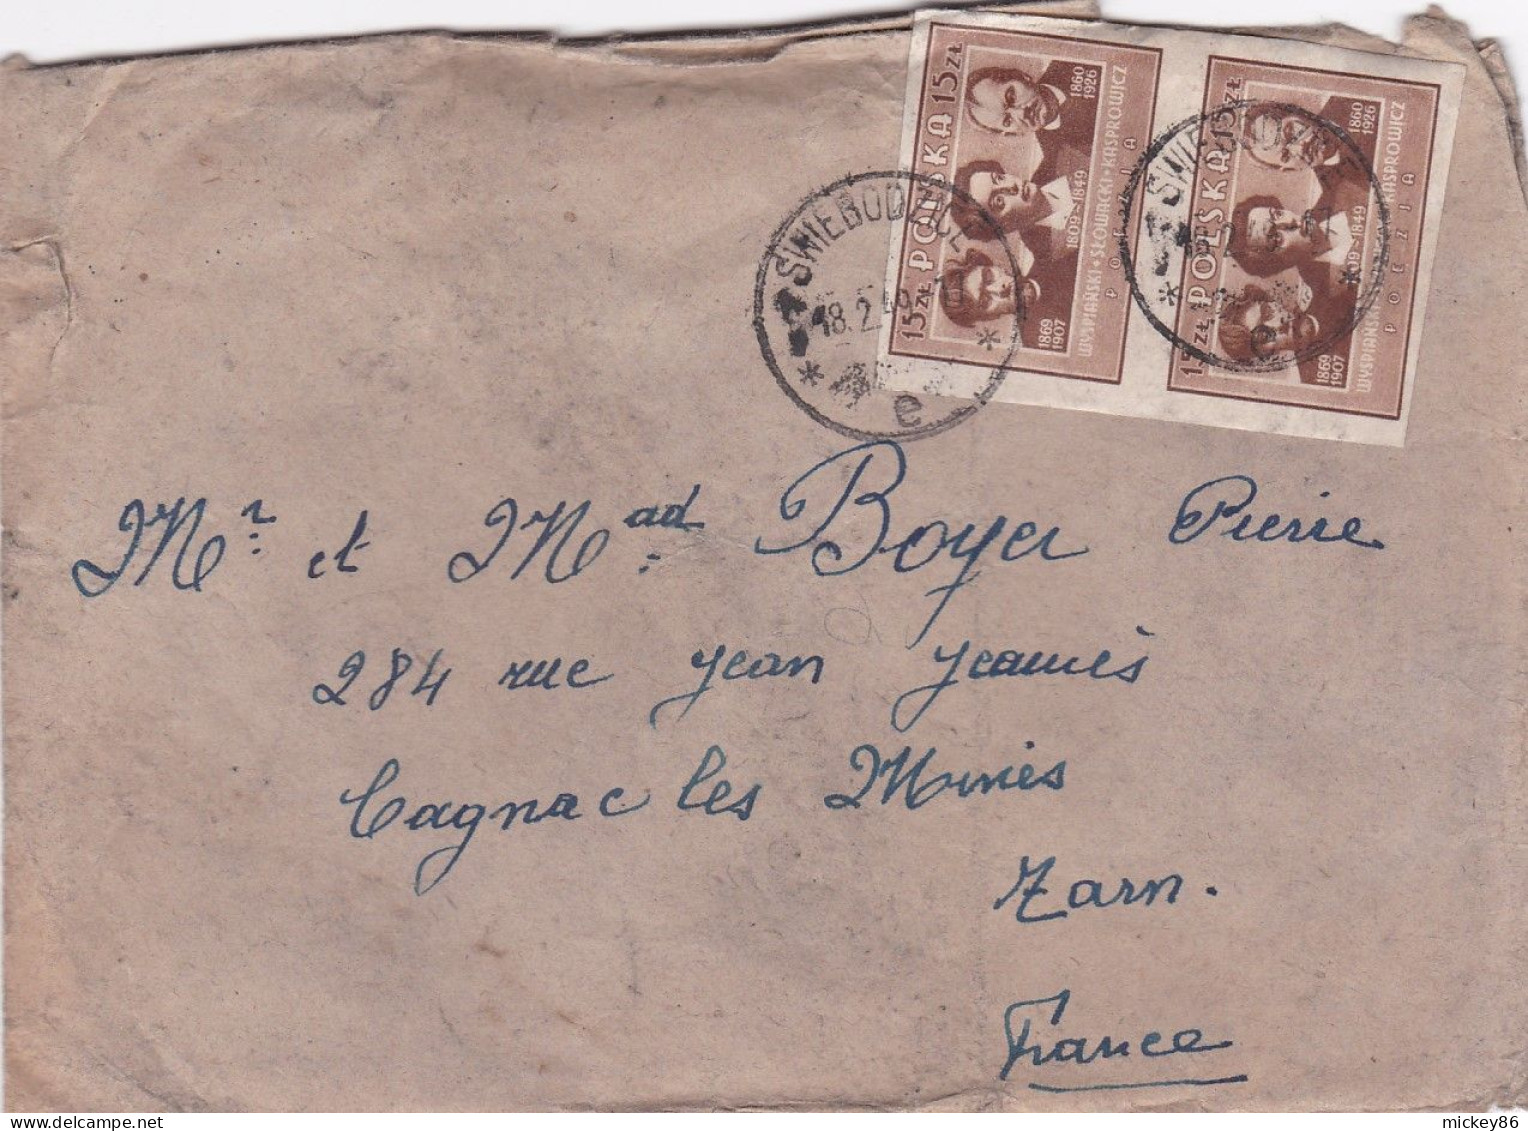 15 ZŁ POLSKA 15 ZŁ
1860 1926
1809-1849
1869 1907
WYSPIAŃSKI • SŁOWACKI • KASPROWICZ
POEZJA
15 ZŁ POLSKA 15 ZŁ
1860 1926
1809-1849
1869 1907
WYSPIAŃSKI • SŁOWACKI • KASPROWICZ
POEZJA
ŚWIEBODZICE
18.2.49
* e *
ŚWIEBODZICE
* e *
Mr. et Mad. Boyer Pierre
284 rue Jean Jeaurès
Cagnac les Mines
Tarn.
France
mickey86